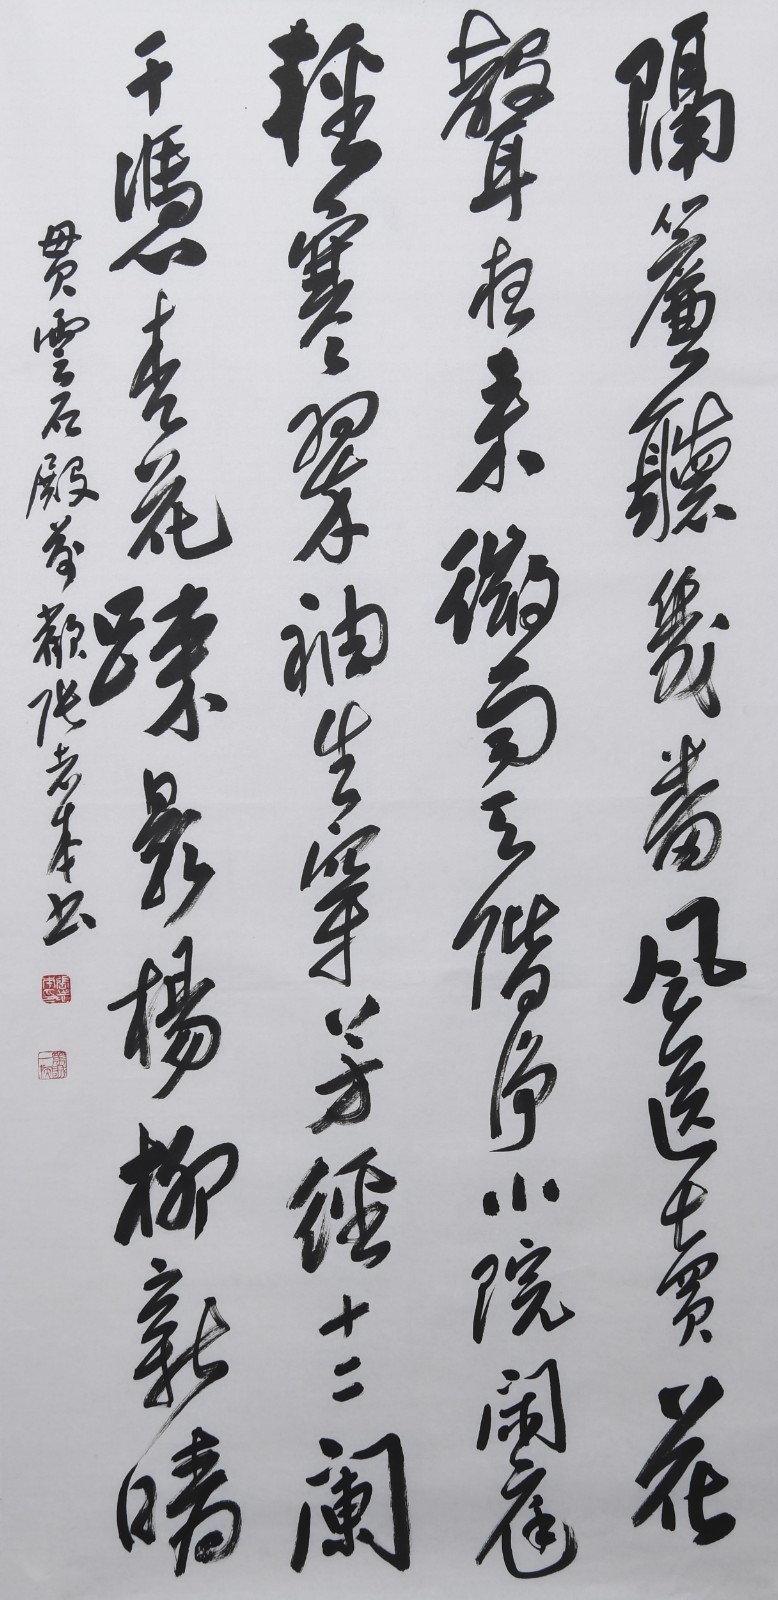 隔簾聽幾番風送賣花
聲夜来微雨天階浄小院閑庭
輕寒翠袖生穿芳徑十二闌
干憑杏花踈影楊柳新晴
貫雲石殿前歡張本书